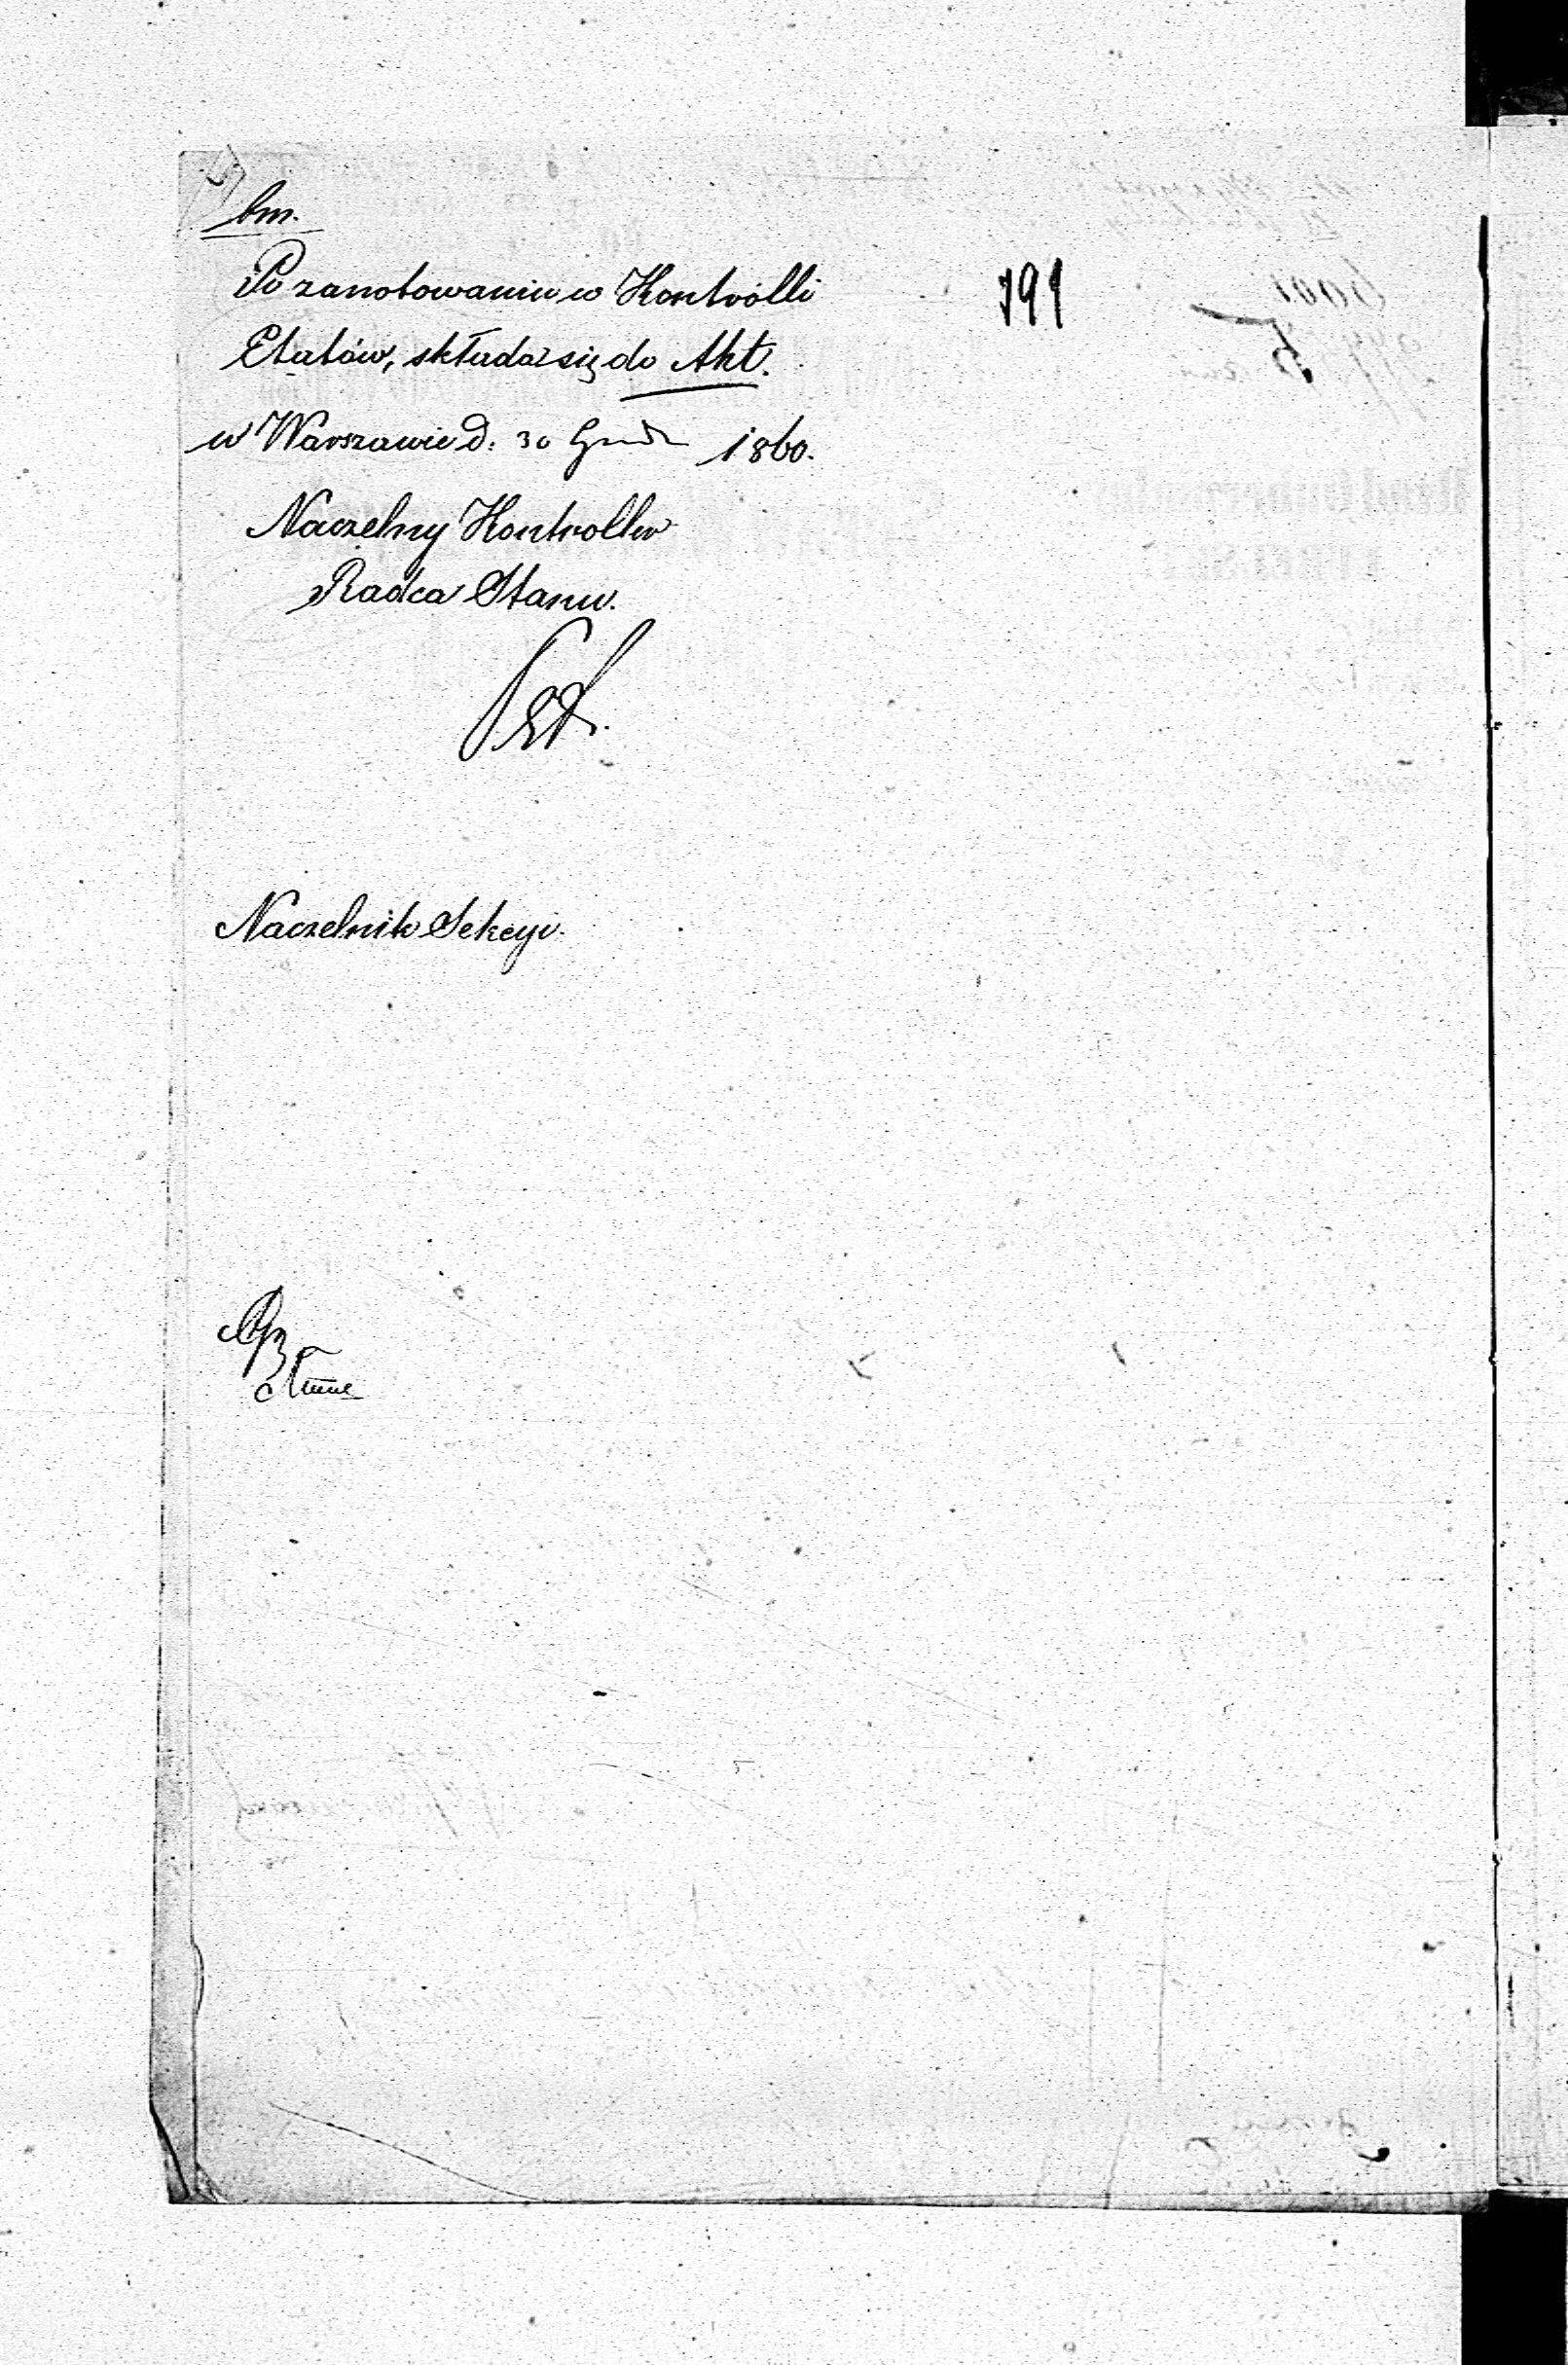 bm.
Po zanotowaniu w Kontrolli
799
Etatów, składa się do Akt.
w Warszawie d. 30 Grud 1860.
Naczelny Kontroller
Radca Stanu.
Naczelnik Sekcyi.